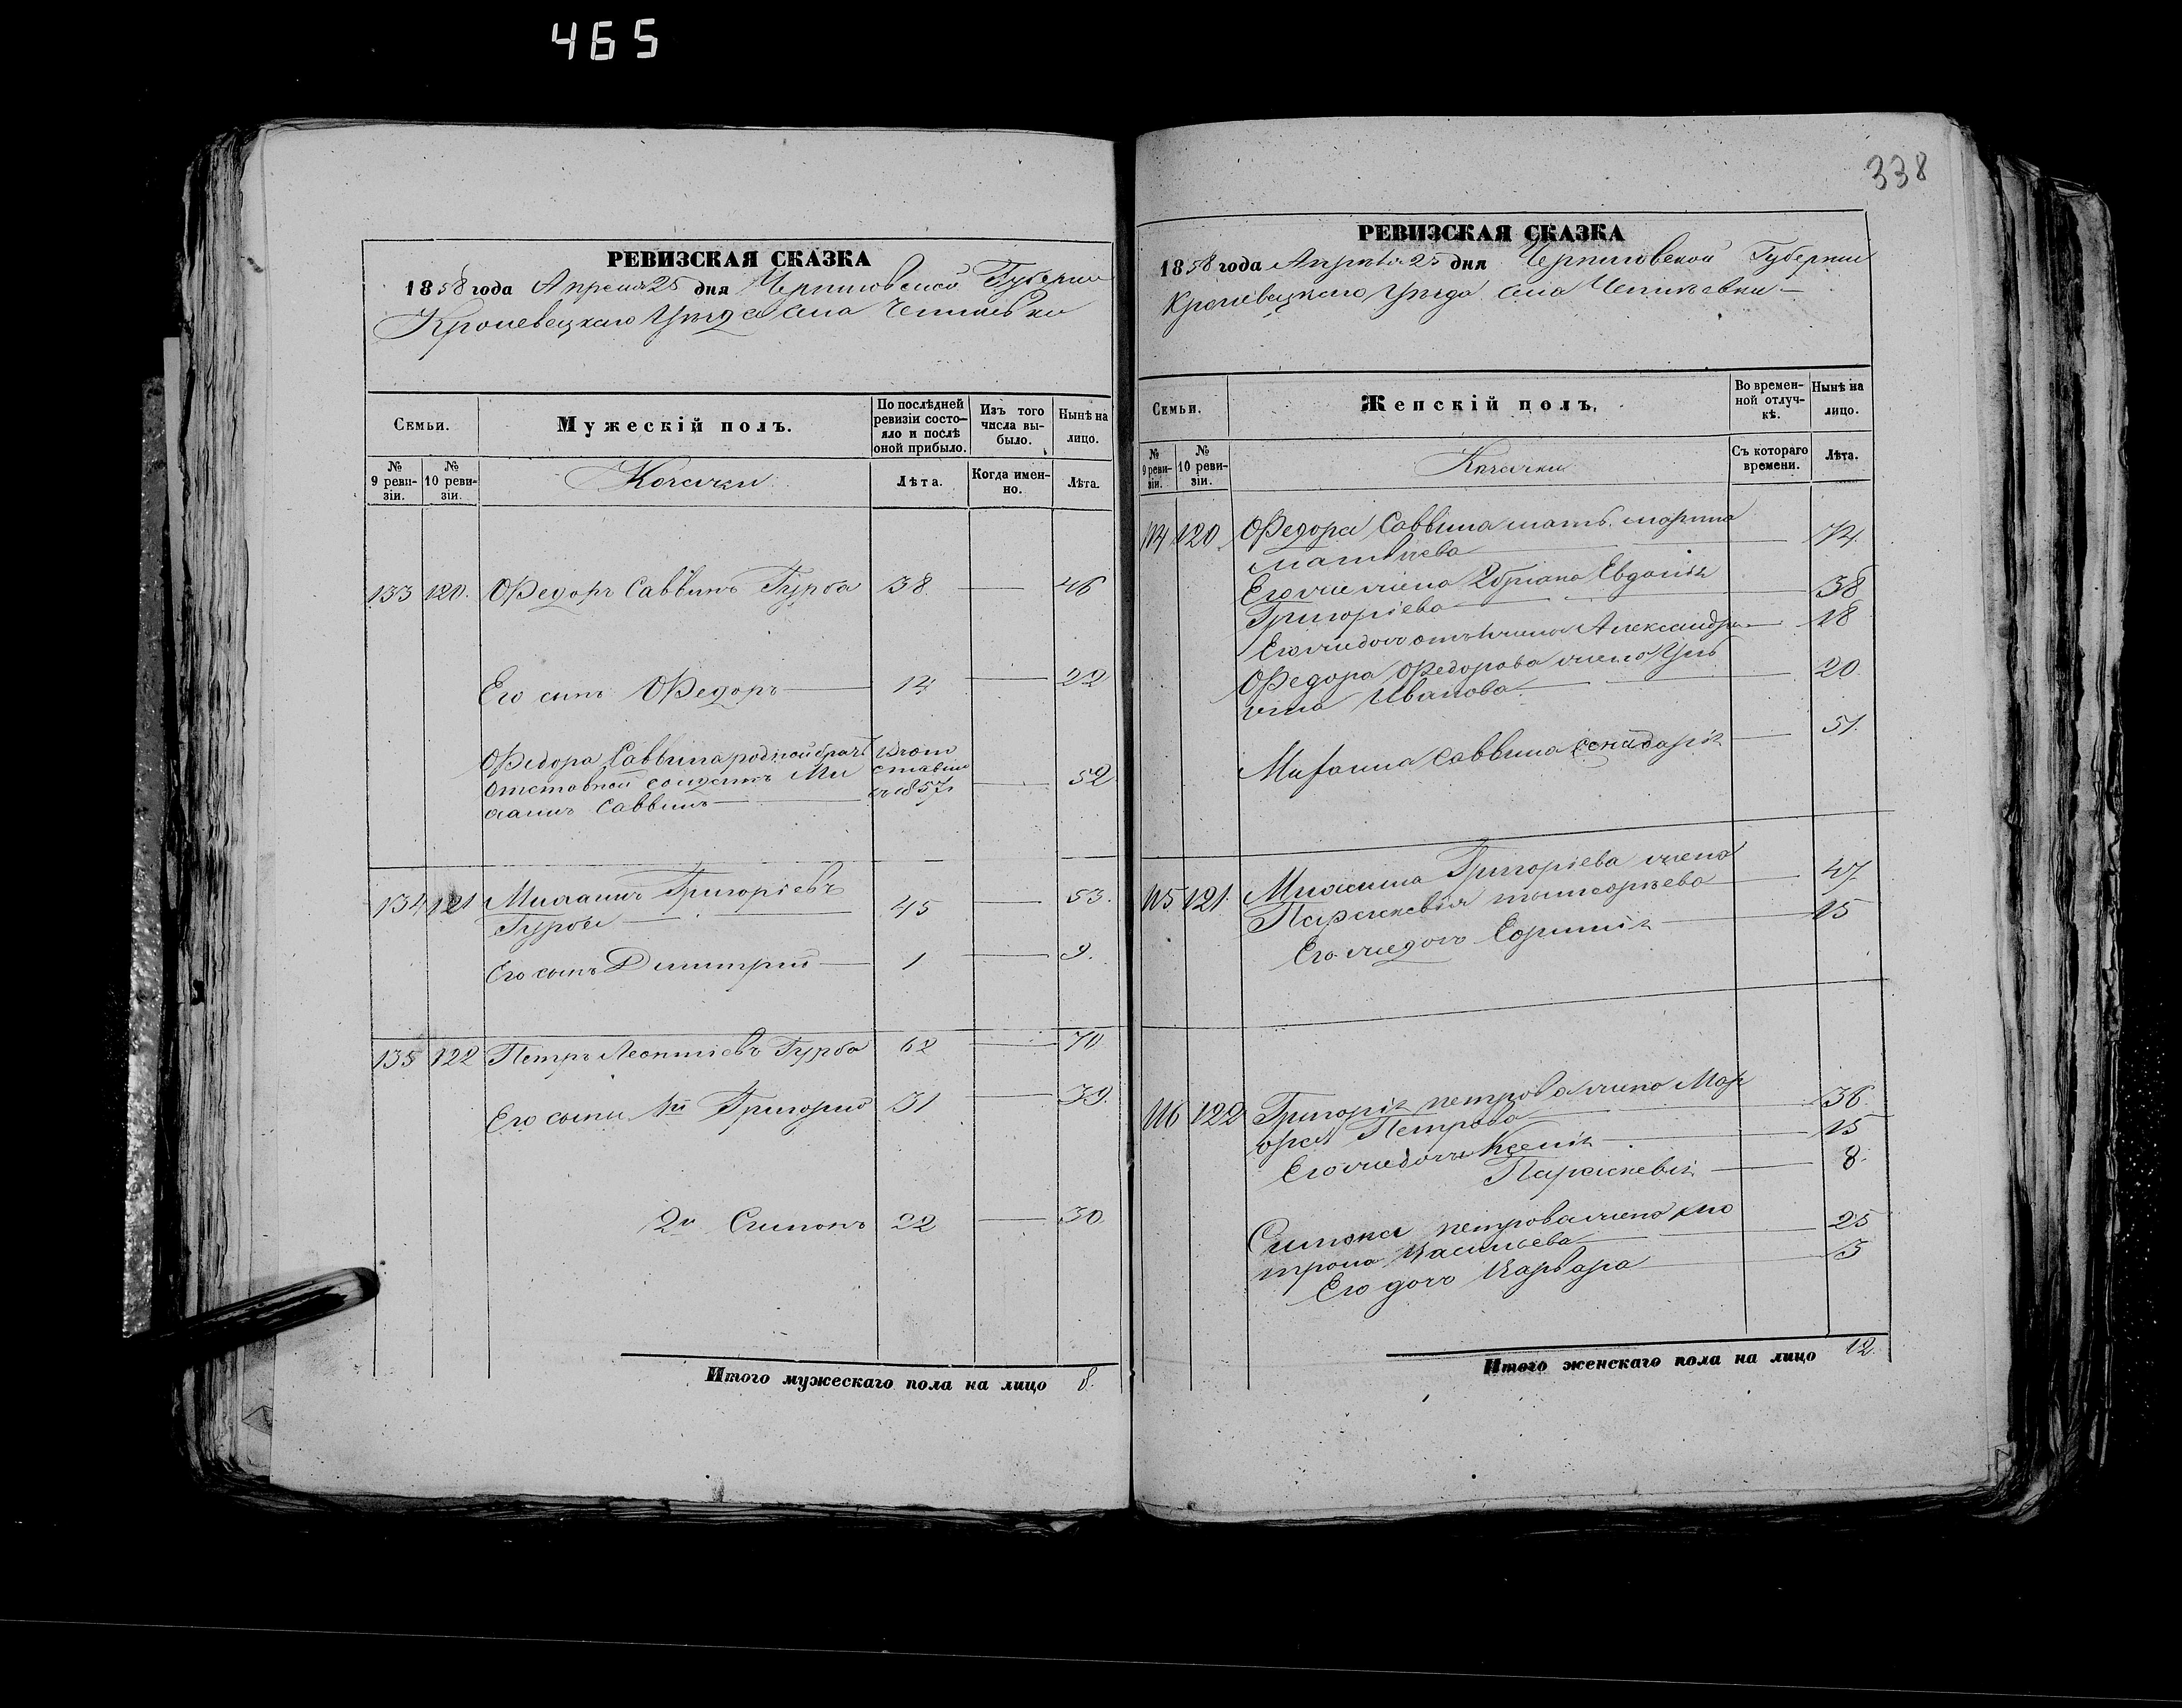 465
338
РЕВИЗСКАЯ СКАЗКА
1858 года Апреля 25 дня Черниговской Губернии
Кролевецкаго Уезда села
Семьи.
Мужескій полъ.
По послѣдней ревизіи состояло и послѣ оной прибыло.
Изъ того числа выбыло.
Нынѣ на лицо.
№ 9 ревизіи.
№ 10 ревизіи.
Козачки
Лѣта.
Когда именно.
Лѣта.
133 120. Ѳедоръ Саввинъ Гурба 38 — 46
Его сынъ Ѳедоръ — 14 — 22
Ѳедора Саввина родной братъ
Отставной солдатъ Ми
Саввинъ — 52
въ 1857
134 121 Григоріевъ
Гурба — 45 — 53.
Его сынъ Димитрій — 1 — 9.
135 122 Петръ Леонтіевъ Гурба 62 — 70
Его сыны 1й Григорій 31 — 39.
2й Симонъ 22 — 30
Итого мужескаго пола на лицо 8.
РЕВИЗСКАЯ СКАЗКА
1858 года Апрѣля 25 дня Черниговской Губернии
Кролевецкаго Уѣзда села
Семьи.
Женскій полъ.
Во временной отлучкѣ.
Нынѣ на лицо.
№ 9 ревизіи.
№ 10 ревизіи.
Козачки
Съ котораго времени.
Лѣта.
114 120 Ѳедора Саввина мать Марина
Матвѣева — 74.
Его жена 2 брака Евдокія
Григоріева — 38
Его жъ дочь Александра — 18
Ѳедора Ѳедорова жена Уль
яна Иванова — 20
Саввина жена Дарія — 51.
115 121. Григоріева жена
Параскевія — 47
Его жъ дочь — 15
116 122 Григорія Петрова жена Мар
Петрова — 36
Его жъ дочь Ксенія — 15
Параскевія — 8.
Симона Петрова жена Мо
трона Васильева — 25
Его дочь Варвара — 3
Итого женскаго пола на лицо 12.